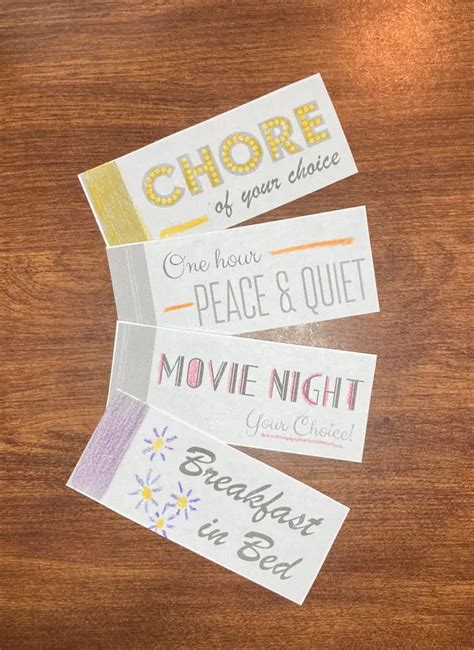 CHORE
of your choice
One hour
PEACE & QUIET
MOVIE NIGHT
Your Choice!
Breakfast
in Bed